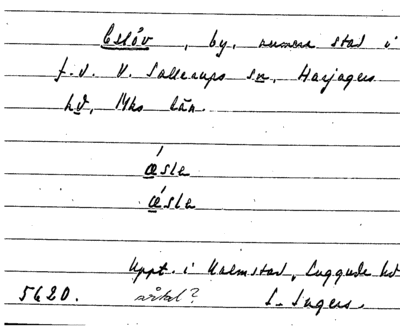 Eslöv, by, numera stad i
f.d. V. Sallerups sn, Harjagers
hd, Mhs län.
ǽsle
ǽsle
Uppt. i Halmstad, Luggude hd
5620. årtal? S. Ingers.